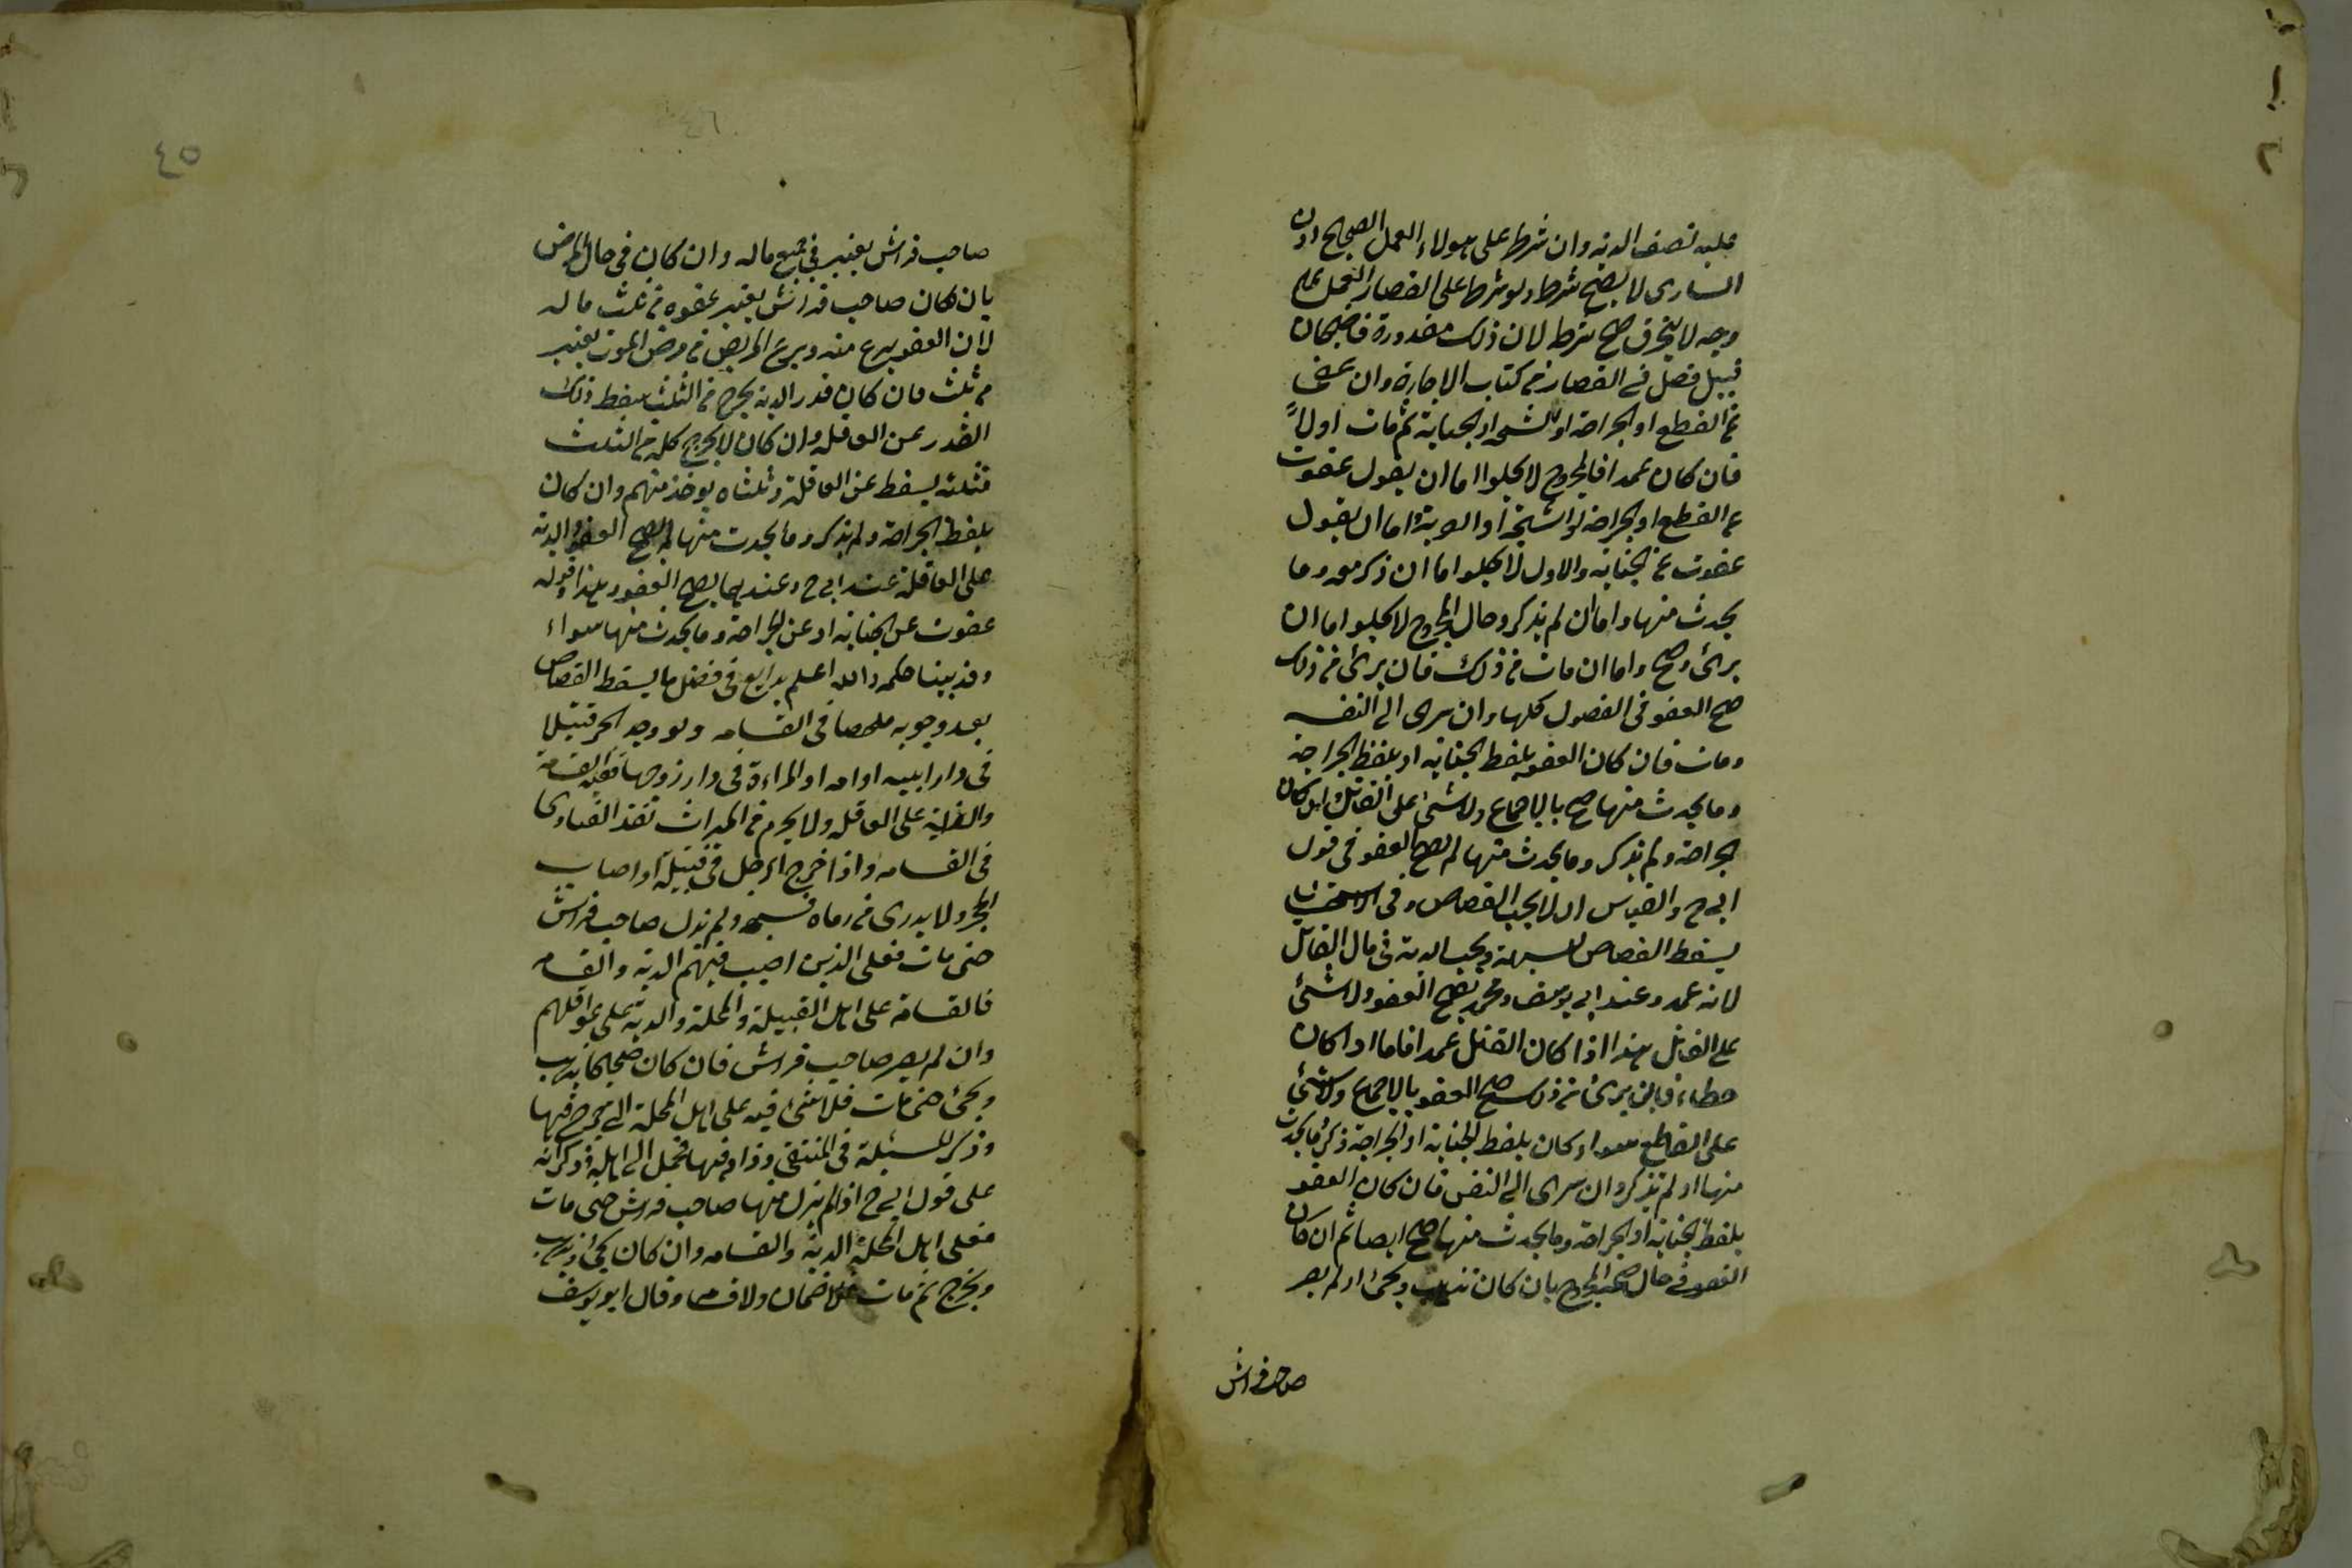 عليه نصف الدية وان شرط على هولاء العمل الصحيح دون
السارى لا يصح شرط ولو شرط على القصار العمل على
وجه لا يتخرق صح شرط لان ذلك مقدورة قاضيخان
قبيل فصل فى القصار من كتاب الاجارة وان عفى
عن القطع او الجراحة او الشجه او الجناية ثم مات اولاً
فان كان عمدا فالمجروح لا يخلوا اما ان يقول عفوت
عن القطع او الجراحة او الشجة او الضربة واما ان يقول
عفوت عن الجناية والاول لا يخلوا اما ان ذكر معه وما
يحدث منها واما ان لم يذكر وحال المجروح لا يخلوا اما ان
برئ وصح واما ان مات من ذلك فان برئ من ذلك
صح العفو فى الفصول كلها وان سرى الى النفس
ومات فان كان العفو بلفظ الجناية او بلفظ الجراحة
وما يحدث منها صح بالاجماع ولا شئ على القاتل وان كان
الجراحة ولم يذكر وما يحدث منها لم يصح العفو فى قول
ابى ح والقياس ان يجب القصاص وفى الاستحسان
يسقط القصاص للشبهة ويجب الدية فى مال القاتل
لانه عمد وعند ابى يوسف ومحمد يصح العفو ولا شئ
على القاتل هذا اذا كان القتل عمدا فاما اذا كان
خطاء فان برئ من ذلك صح العفو بالاجماع ولا شئ
على القاطع سواء كان بلفظ الجناية او الجراحة ذكر وما يحدث
منها او لم يذكر وان سرى الى النفس فان كان العفو
بلفظ الجناية او الجراحة وما يحدث منها صح ايضا ثم ان كان
العفو فى حال صحة المجروح بان كان يذهب ويجئ او لم يصر
صاحب فراش
٤٥
٤٦
صاحب فراش يعتبر فى جميع ماله وان كان فى حال المرض
بان كان صاحب فراش يعتبر عفوه من ثلث ماله
لان العفو تبرع منه وتبرع المريض فى مرض الموت يعتبر
من ثلث فان كان قدر الدية يخرج من الثلث سقط ذلك
القدر عن العاقلة وان كان لا يخرج كله من الثلث
فثلثه يسقط عن العاقلة وثلثاه يوخذ منهم وان كان
بلفظ الجراحة ولم يذكر وما يحدث منها لم يصح العفو والدية
على العاقلة عند ابى ح وعندهما يصح العفو وهذا وقوله
عفوت عن الجناية او عن الجراحة وما يحدث منها سواء
وقد بينا حكمه والله اعلم بدايع فى فصل ما يسقط القصاص
بعد وجوبه ملخصا فى القسامه ولو وجد الحر قتيلا
فى دار ابيه او امه او المراءة فى دار زوجها ففيه القسامة
والدية على العاقلة ولا يحرم من الميراث نقد الفتاوى
فى القسامه واذا خرج الرجل فى قبيلة او اصاب
الحجر ولا يدرى من رماه فشجه ولم يزل صاحب فراش
حتى مات فعلى الذين اصيب فيهم الدية والقسامه
فالقسامة على اهل القبيلة والمحلة والدية على عواقلهم
وان لم يصر صاحب فراش فان كان صحيحا يذهب
ويجئ حتى مات فلا شئ فيه على اهل المحلة التى جرح فيها
وذكر المسئلة فى المنتقى وزاد فيها فحمل الى اهله وذكر انه
على قول ابى ح اذا لم يزل منها صاحب فراش حتى مات
فعلى اهل المحلة الدية والقسامه وان كان يجئ ويذهب
ويخرج ثم مات فلا ضمان ولا قسامه وقال ابو يوسف